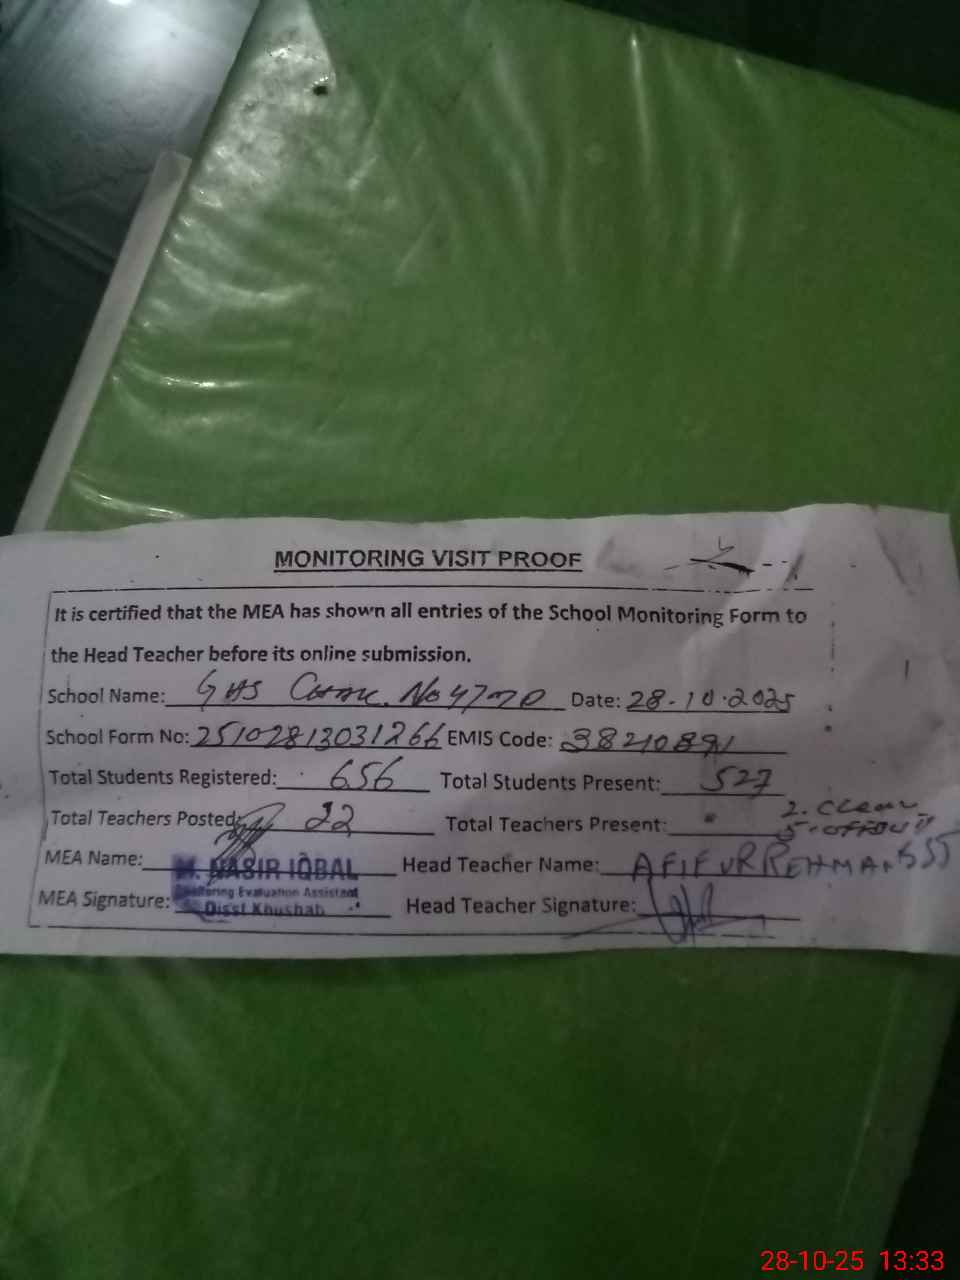 MONITORING VISIT PROOF
It is certified that the MEA has shown all entries of the School Monitoring Form to
the Head Teacher before its online submission.
School Name: GHS Chak No 47 Date: 28-10-2025
School Form No: 25102813031266 EMIS Code: 38210891
Total Students Registered: 656 Total Students Present: 527
Total Teachers Posted: 22 Total Teachers Present: 2. CLeave
MEA Name: M. NASIR IQBAL Head Teacher Name: AFIFURREHMAN SST
Monitoring Evaluation Assistant
MEA Signature: Disst Khushab Head Teacher Signature:
28-10-25 13:33